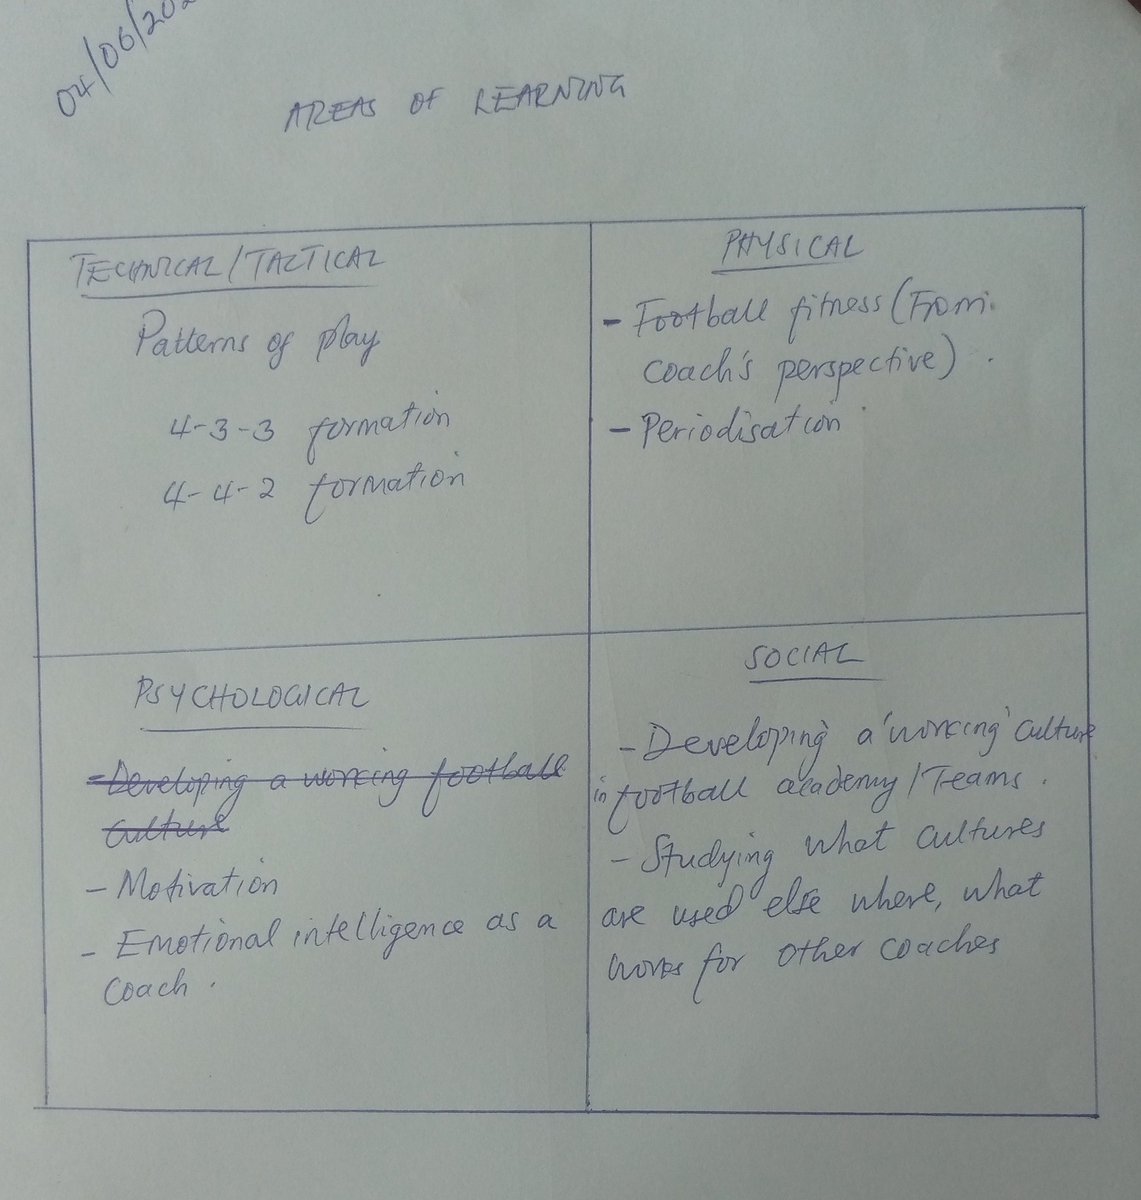 04/06/202
AREAS OF LEARNING
TECHNICAL/TACTICAL
Patterns of play
4-3-3 formation
4-4-2 formation
PHYSICAL
- Football fitness (From
coach's perspective).
- Periodisation
PSYCHOLOGICAL
- Developing a working football
culture
- Motivation
- Emotional intelligence as a
coach.
SOCIAL
- Developing a 'working' culture
in football academy/Teams.
- Studying what cultures
are used else where, what
works for other coaches